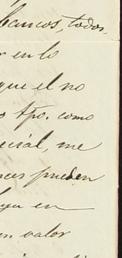 barcos, todos
r en lo
que el no
s tpo. como
ecial, me
nces pueden
lya en
en valor